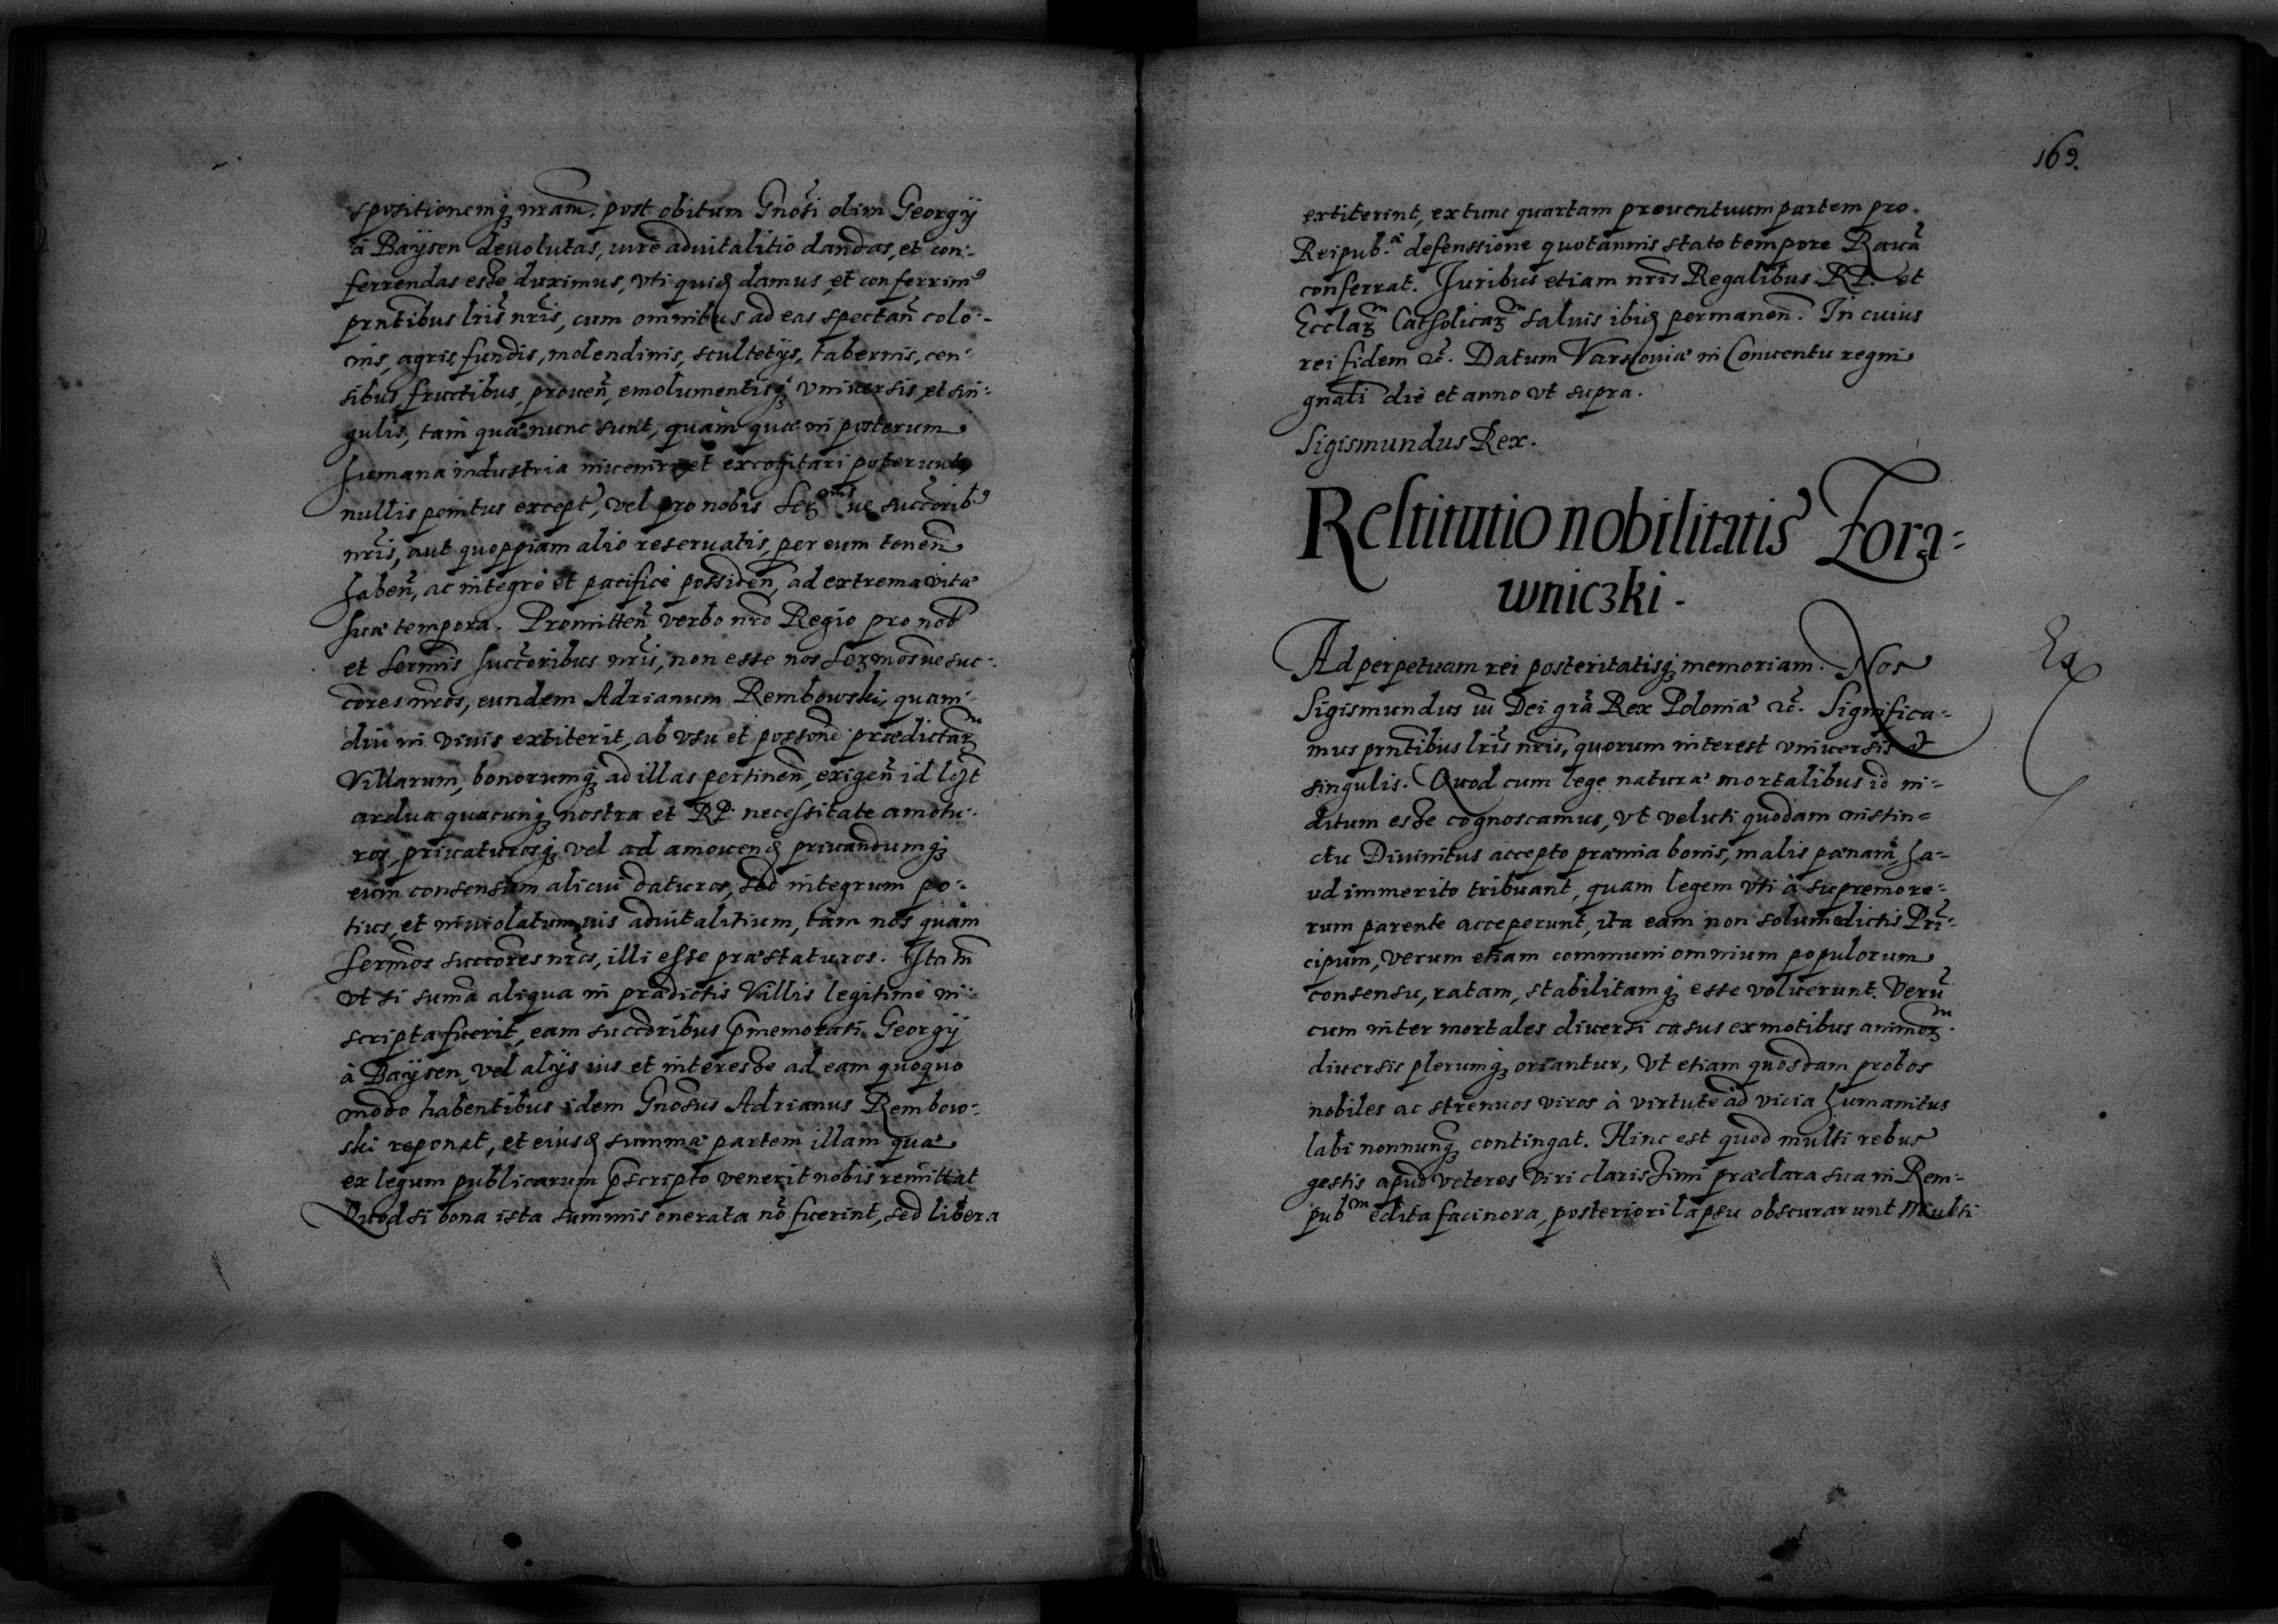 spositionemq nram, post obitum Gnosi olim Georgij
à Baÿsen deuolutas, iure aduitalitio dandas, et con-
ferrendas esse duximus, vti quidem damus, et conferrimus
prntibus lris nris, cum omnibus ad eas spectan colo-
nis, agris, fundis, molendinis, scultetijs, tabernis, cen-
sibus, fructibus, prouen, emolumentisq vniuersis et sin-
gulis, tam quæ nunc sunt, quàm quæ in posterum
humana industria inueniri et excogitari poterunt,
nullis penitus except, vel pro nobis Ser mis ve succorib9
nris, aut quoppiam alio reseruatis, per eum tenen
haben, ac integrè et pacificè possiden, ad extrema vitæ
suæ tempora. Promitten verbo nro Regio pro nob
et sermis succoribus nris, non esse nos sermosue suc-
cores nros, eundem Adrianum Rembowski, quam-
diu in viuis extiterit, ab vsu et possone prædictar
Villarum, bonorumq ad illas pertinen, exigen id licet
ardua quacunq nostra et RP. necessitate amotu-
ros, priuaturosq vel ad amouend priuandumq
eum consensum alicui daturos, sed integrum po-
tius, et inuiolatum ius aduitalitium, tam nos quàm
sermos succores nros, illi esse præstaturos. Ita tn
vt si suma aliqua in prædictis Villis legitimè in-
scripta fuerit, eam succoribus pmemorati Georgij
à Baÿsen, vel alijs ius et interesse ad eam quoquo
modo habentibus idem Gnosus Adrianus Rembow-
ski reponat, et eiusd summæ partem illam quæ
ex legum publicarum pscripto venerit nobis remittat
Quod si bona ista summis onerata nō fuerint, sed libera
169.
extiterint, extunc quartam prouentuum partem pro
Reipub.æ defenssione quotannis stato tempore Rauā
conferrat. Juribus etiam nris Regalibus RP. et
Ecclar Catholicar saluis ibid permanen. In cuius
rei fidem etc. Datum Varsouiæ in Conuentu regni
gnali die et anno vt supra.
Sigismundus Rex.
Restitutio nobilitatis Zora-
wniczki.
Ad perpetuam rei posteritatisq memoriam. Nos
Sigismundus iii Dei gra Rex Poloniæ etc. Significa-
mus prntibus lris nris, quorum interest vniuersis et
singulis. Quod cum lege naturæ mortalibus id in-
ditum esse cognoscamus, vt veluti quodam instin-
ctu Diuinitus accepto præmia bonis, malis pænam ha-
ud immerito tribuant, quam legem vti à supremo re-
rum parente acceperunt, ita eam non solum edictis Prī-
cipum, verum etiam communi omnium populorum
consensu, ratam, stabilitamq esse voluerunt. Verū
cum inter mortales diuersi casus ex motibus animor
diuersis plerumq oriantur, vt etiam quosdam probos
nobiles ac strenuos viros à virtute ad vicia humanitus
labi nonnunq contingat. Hinc est quod multi rebus
gestis apud veteres viri clarissimi præclara sua in Rem-
pubcm edita facinora, posteriori lapsu obscurarunt Multi